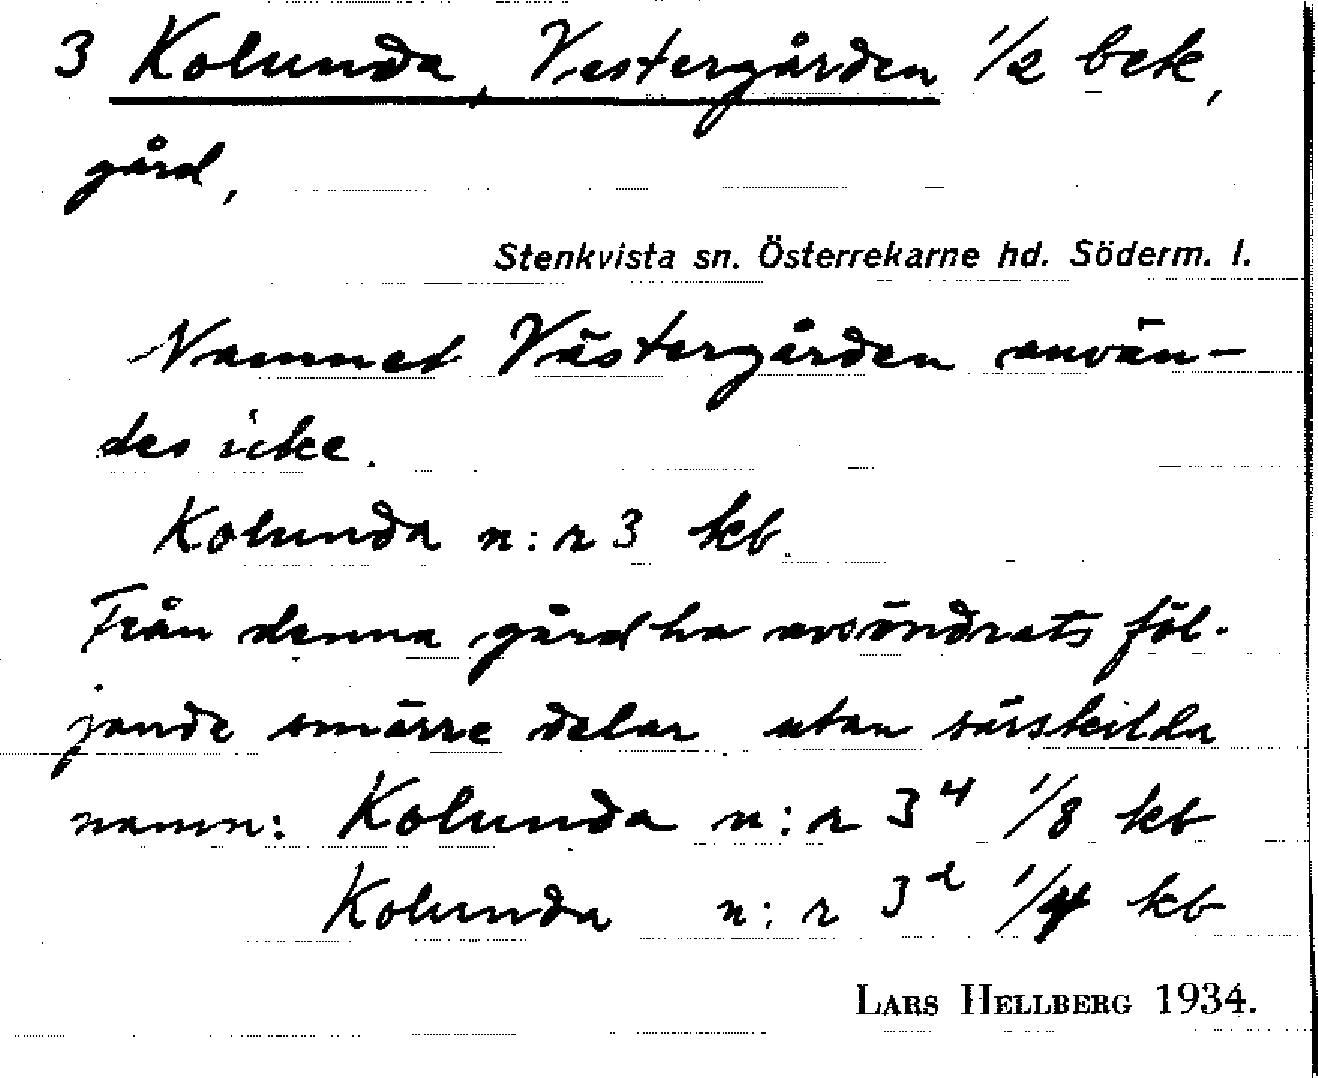 3 Kolunda, Vestergården 1/2 bek,
gård,
Stenkvista sn. Österrekarne hd. Söderm. l.
Namnet Västergården använ-
des icke.
Kolunda n:r 3 kb.
Från denna gård ha avsöndrats föl-
jande smärre delar utan särskilda
namn: Kolunda n:r 3⁴ 1/8 kb
Kolunda n:r 3² 1/4 kb
LARS HELLBERG 1934.